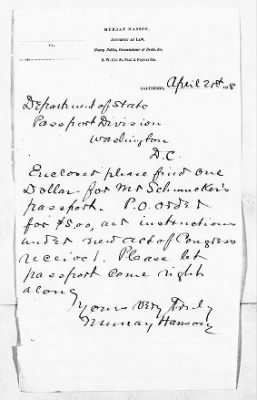 MURRAY HANSON,
ATTORNEY AT LAW,
Notary Public, Commissioner of Deeds, &c.
vs.
S. W. Cor. St. Paul & Fayette Sts.
BALTIMORE, April 20th
Department of State
Passport Division
Washington
D.C.
Enclosed please find one
Dollar for Mr Schmucker's
passport. P.O. order
for $5.00, and instructions
under new act of Congress
received. Please let
passport come right
along
Yours very truly
Murray Hanson